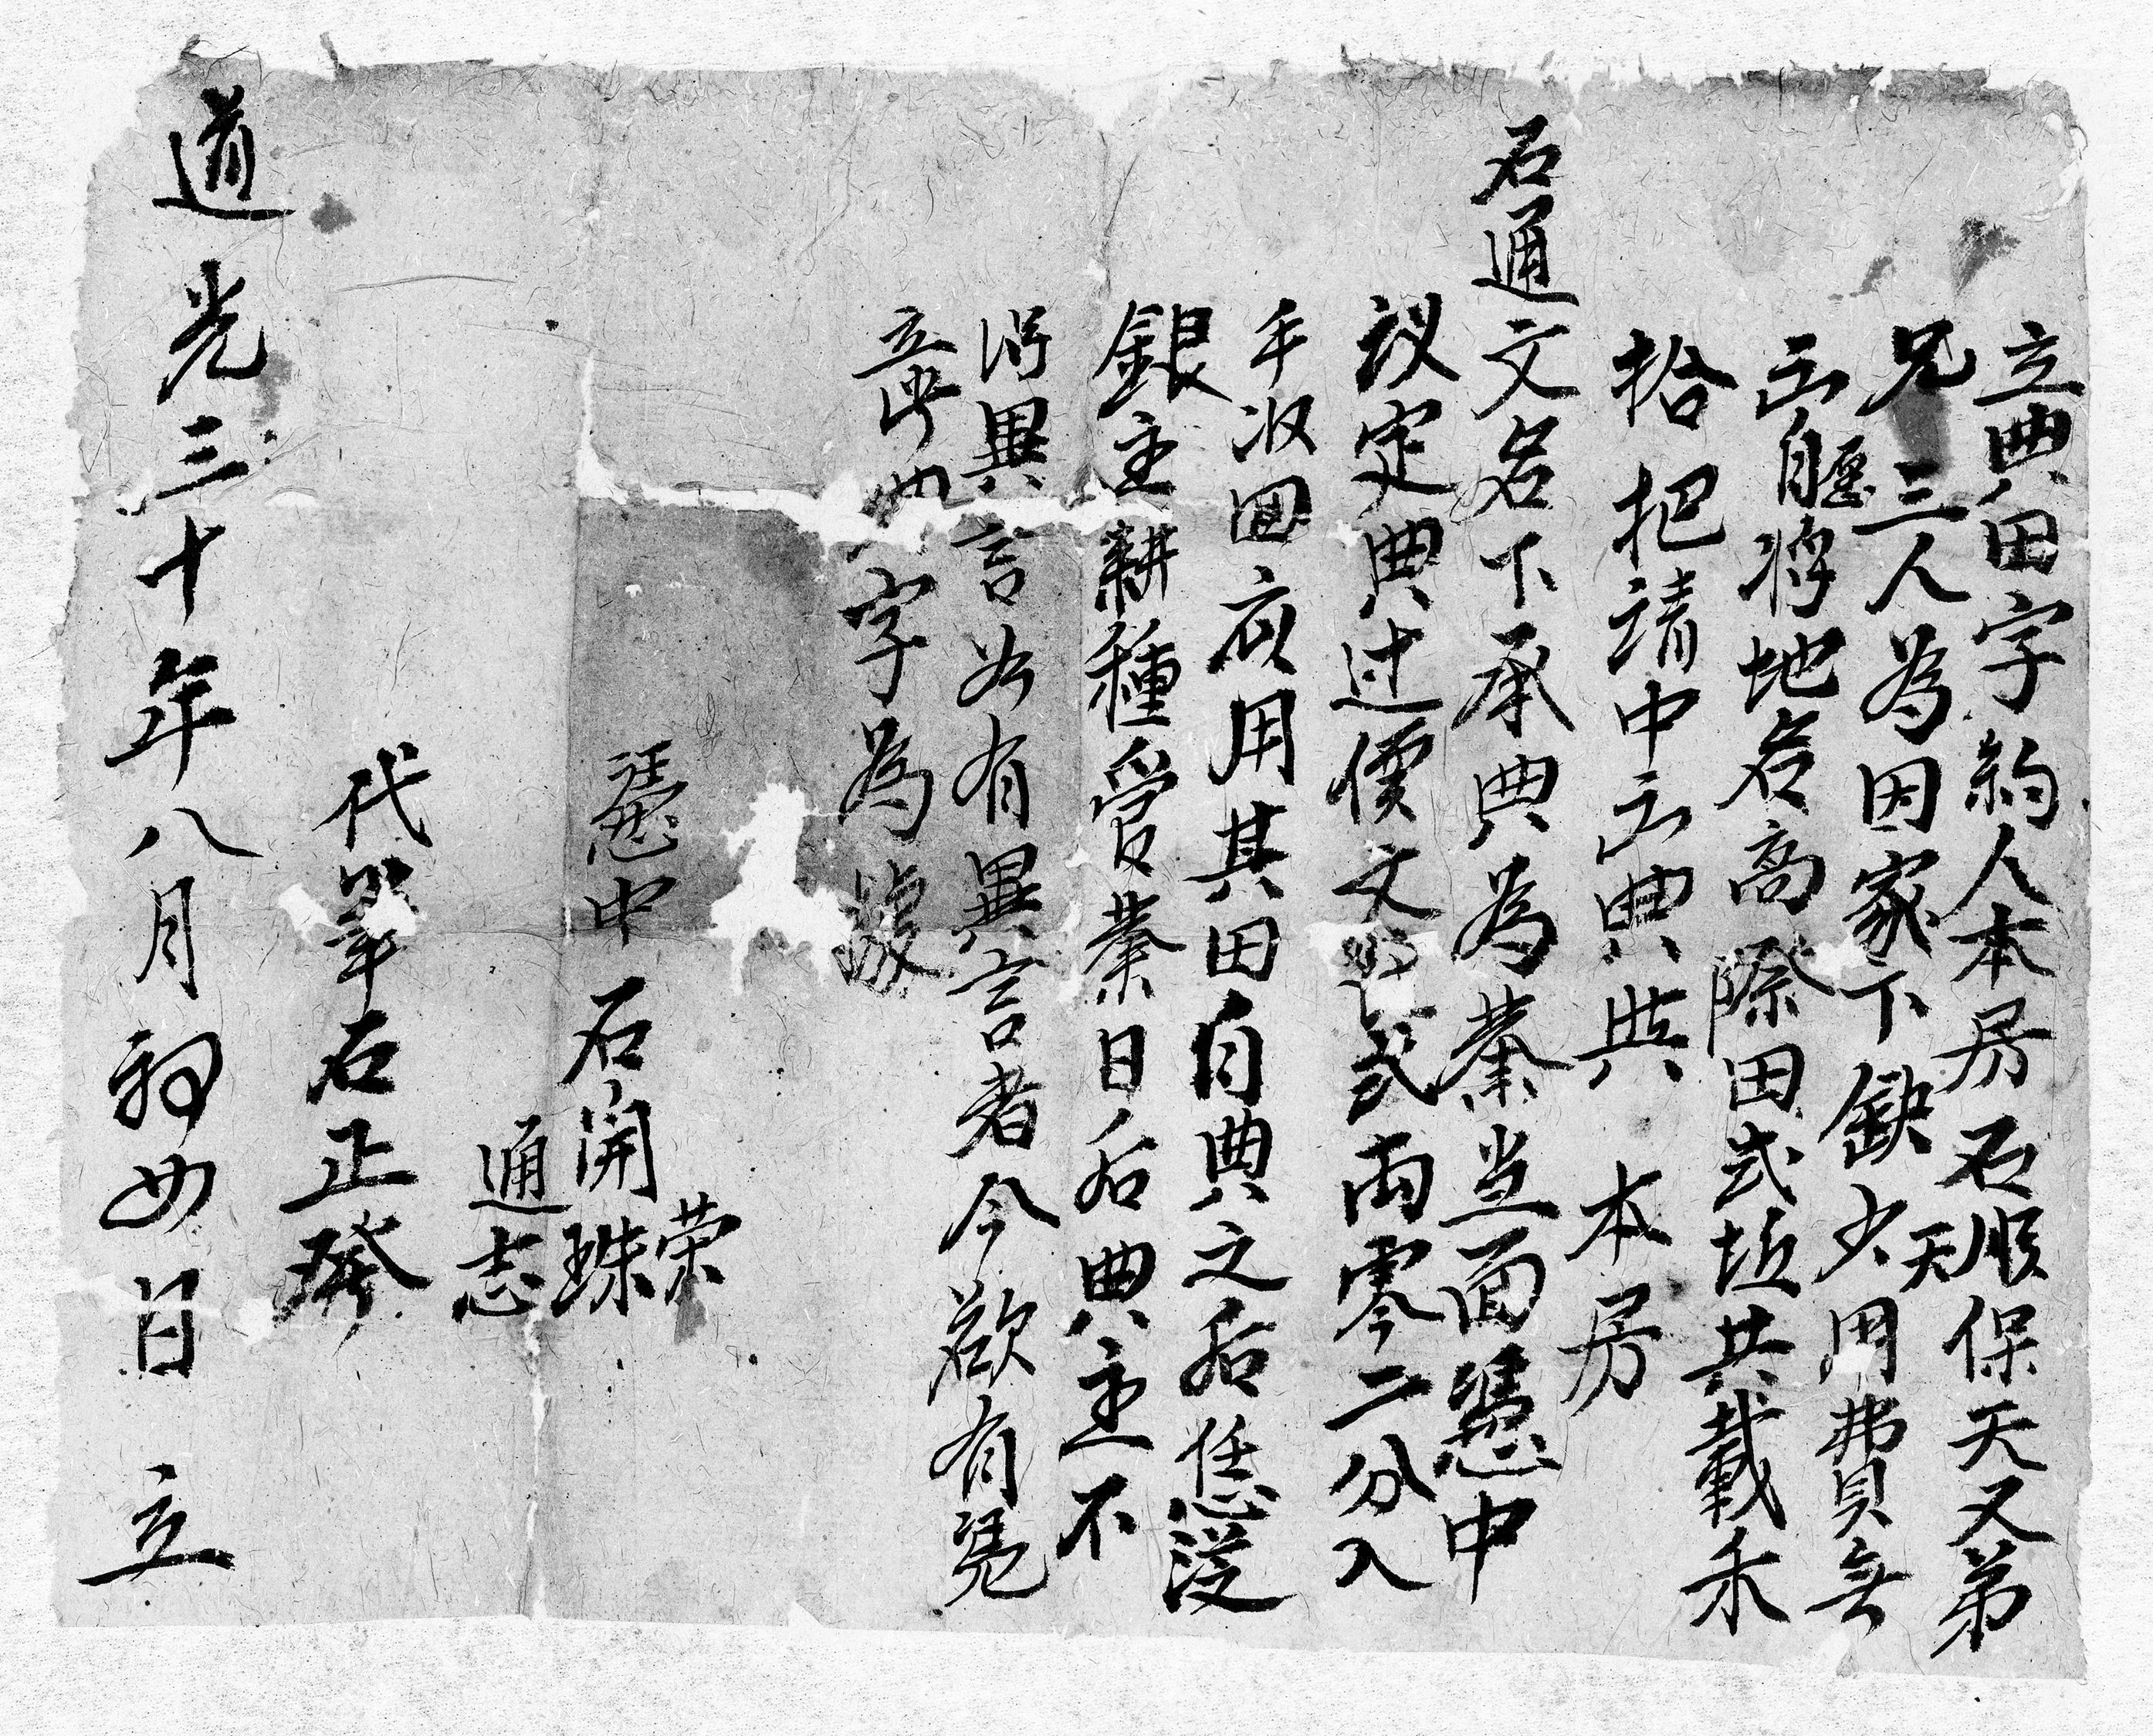 立典田字約人本房石順保天又弟
天
兄三人為因家下缺少用費無
出自愿将地名高際田弍坵共載禾
拾把請中出典與 本房
石通文名下承典為業当面憑中
议定典过價文銀弍両零二分入
手收回應用其田自典之后恁從
銀主耕種管業日后典主不
得異言如有異言者今欲有凭
立此典字為據
憑中 石開珠
荣
通志
代筆石正發
道光三十年八月初四日 立